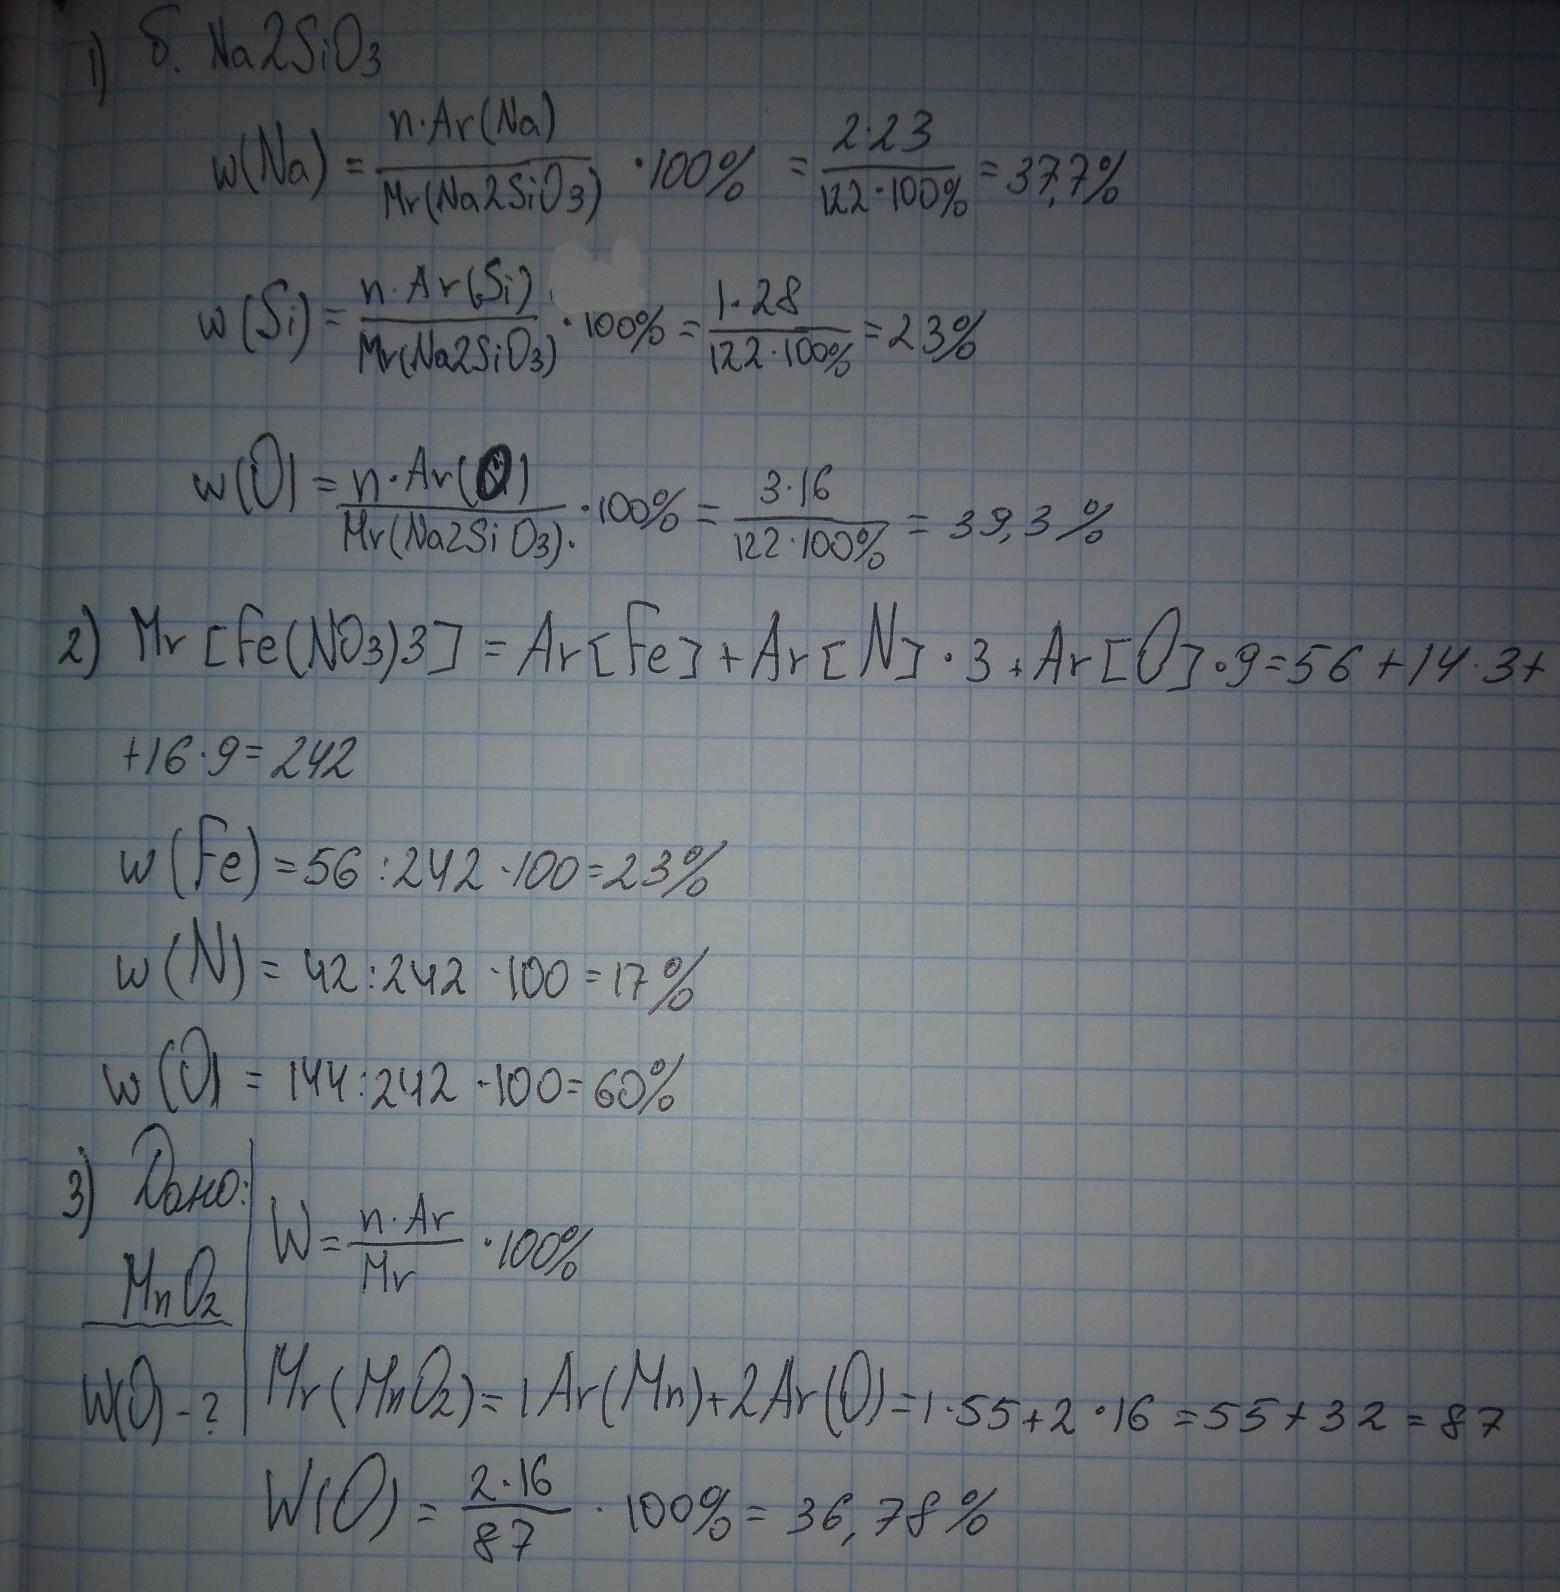 1) б. Na2SiO3
w(Na) = n·Ar(Na) / Mr(Na2SiO3) ·100% = 2·23 / 122·100% = 37,7%
w(Si) = n·Ar(Si) / Mr(Na2SiO3) ·100% = 1·28 / 122·100% = 23%
w(O) = n·Ar(O) / Mr(Na2SiO3). ·100% = 3·16 / 122·100% = 39,3%
2) Mr [Fe(NO3)3] = Ar[Fe] + Ar[N]·3 + Ar[O]·9 = 56 + 14·3 +
+16·9 = 242
w(Fe) = 56:242·100 = 23%
w(N) = 42:242·100 = 17%
w(O) = 144:242·100 = 60%
3) Дано:
MnO2
W(O) - ?
W = n·Ar / Mr ·100%
Mr(MnO2) = 1Ar(Mn) + 2Ar(O) = 1·55 + 2·16 = 55 + 32 = 87
W(O) = 2·16 / 87 · 100% = 36,78%